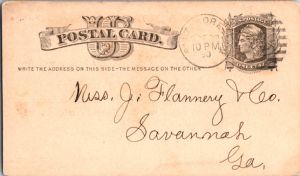 POSTAL CARD.
10 PM
WRITE THE ADDRESS ON THIS SIDE - THE MESSAGE ON THE OTHER
Mess. J. Flannery & Co.
Savannah
Ga.